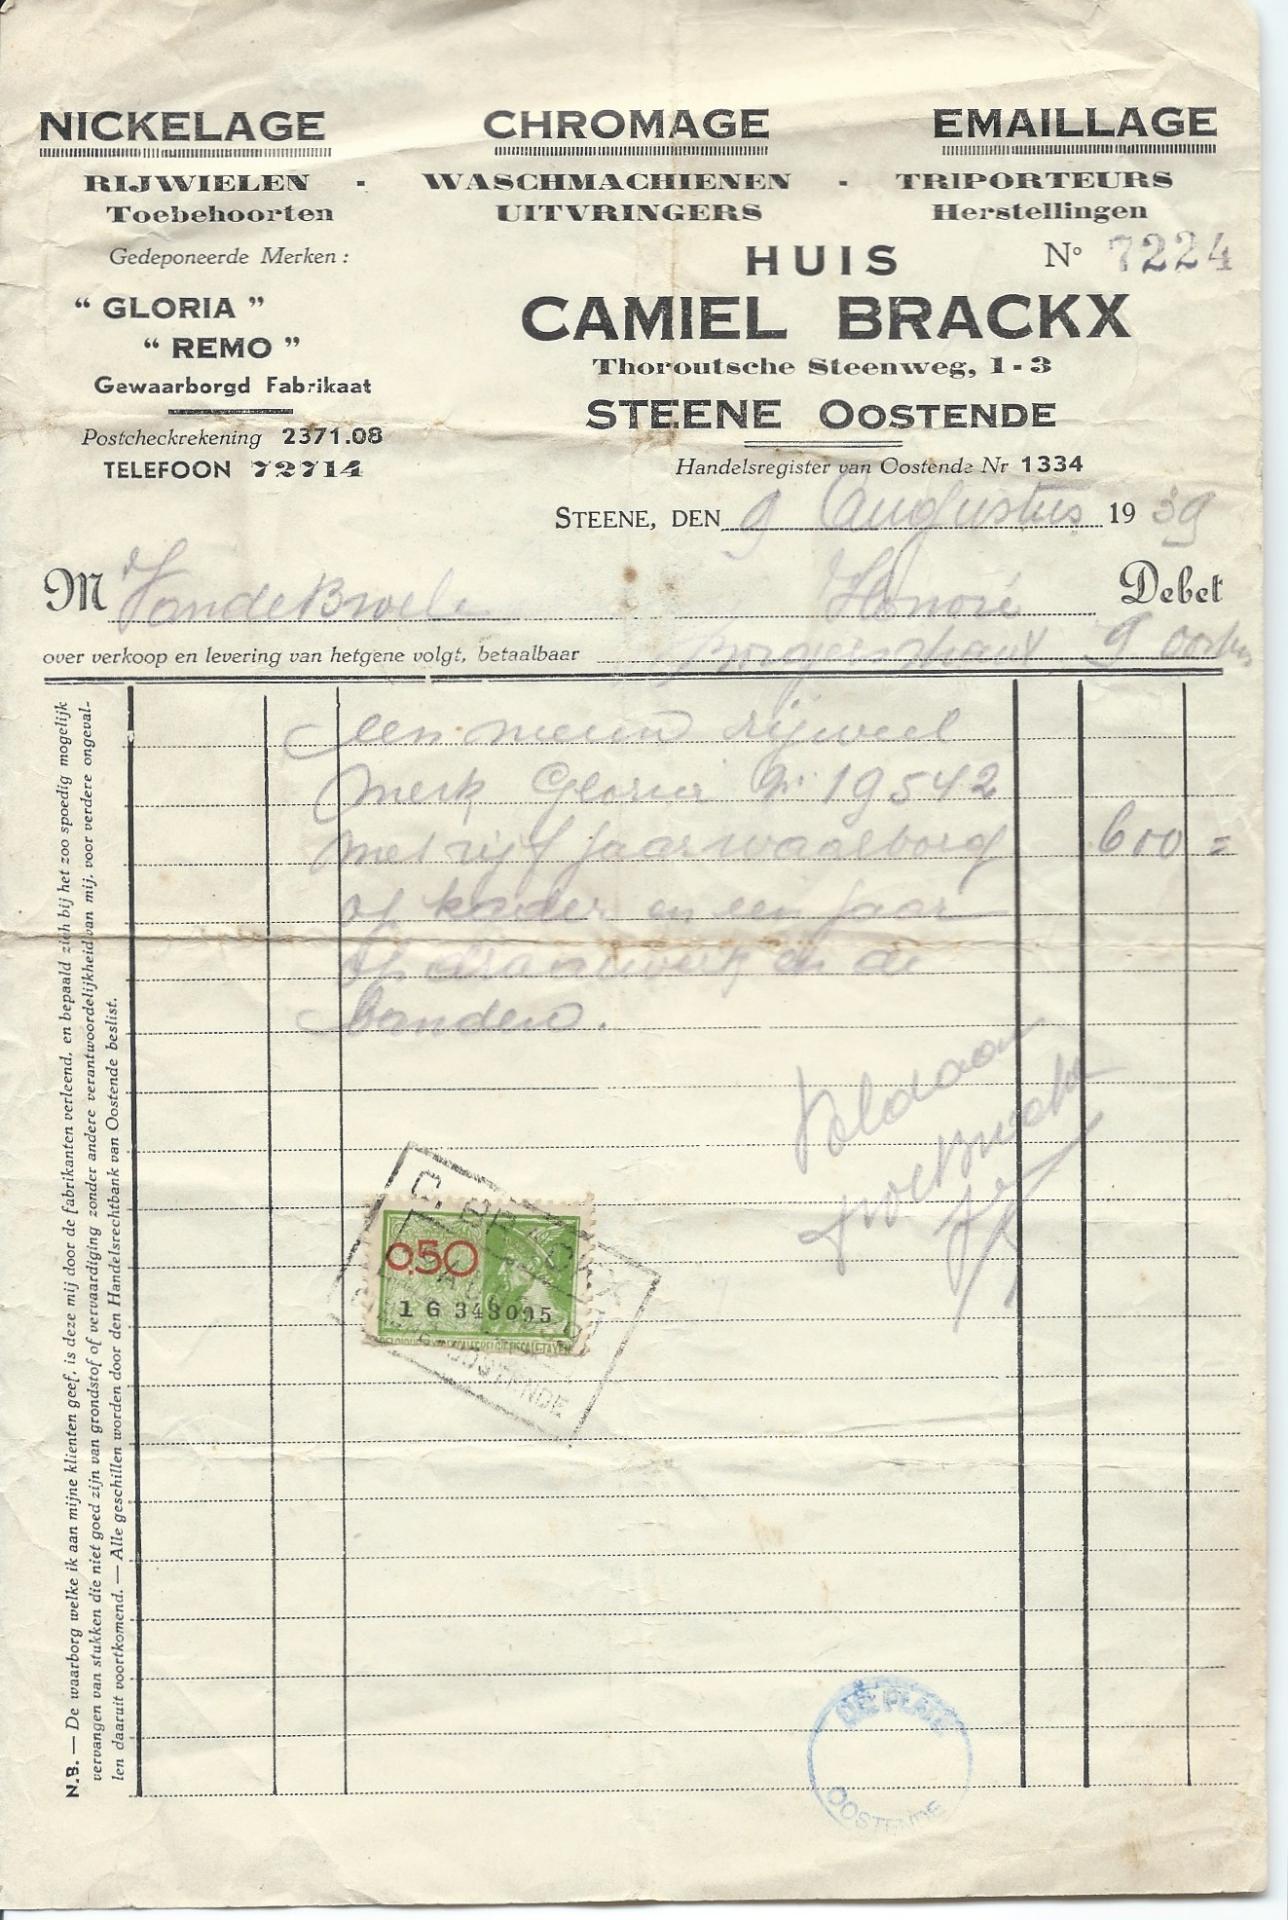 NICKELAGE CHROMAGE EMAILLAGE
RIJWIELEN - WASCHMACHIENEN - TRIPORTEURS
Toebehoorten UITVRINGERS Herstellingen
Gedeponeerde Merken :
“ GLORIA ”
“ REMO ”
Gewaarborgd Fabrikaat
Postcheckrekening 2371.08
TELEFOON 72714
HUIS Nº 7224
CAMIEL BRACKX
Thoroutsche Steenweg, 1 - 3
STEENE OOSTENDE
Handelsregister van Oostende Nr 1334
STEENE, DEN 9 Augustus 1939
M VandeBroele Honoré Debet
over verkoop en levering van hetgene volgt, betaalbaar 9
een nieuw rijwiel
Merk Gloria Nr 19542
met vijf jaar waarborg 600 =
op kader en een jaar
op de
banden.
Voldaan
C. BRACKX
0,50
1 G 348095
OOSTENDE
DE PLATE
OOSTENDE
N.B. — De waarborg welke ik aan mijne klienten geef, is deze mij door de fabrikanten verleend, en bepaald zich bij het zoo spoedig mogelijk
vervangen van stukken die niet goed zijn van grondstof of vervaardiging zonder andere verantwoordelijkheid van mij. voor verdere ongeval-
len daaruit voortkomend. — Alle geschillen worden door den Handelsrechtbank van Oostende beslist.